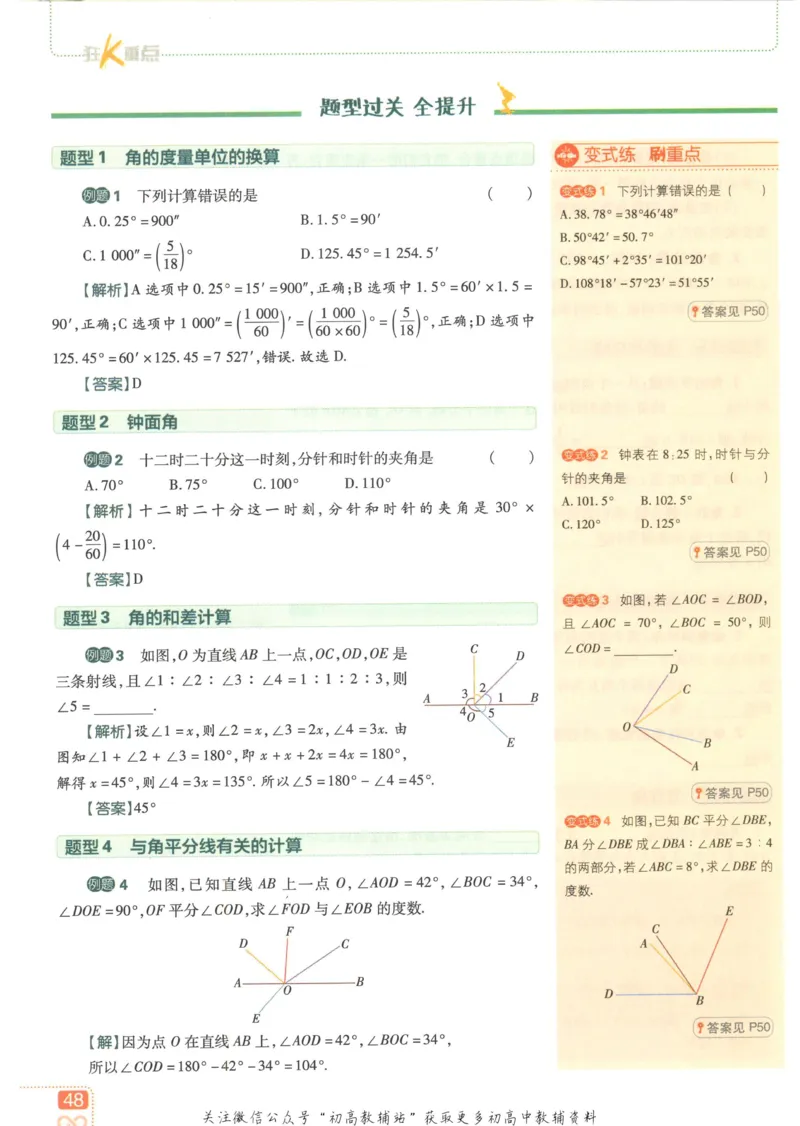 狂K重点
题型过关 全提升
题型1 角的度量单位的换算
例题1 下列计算错误的是 ( )
A.0.25°=900″ B.1.5°=90′
C.1 000″=(5/18)° D.125.45°=1 254.5′
【解析】A选项中0.25°=15′=900″,正确;B选项中1.5°=60′×1.5=
90′,正确;C选项中1 000″=(1 000/60)′=(1 000/60×60)°=(5/18)°,正确;D选项中
125.45°=60′×125.45=7 527′,错误.故选D.
【答案】D
题型2 钟面角
例题2 十二时二十分这一时刻,分针和时针的夹角是 ( )
A.70° B.75° C.100° D.110°
【解析】十二时二十分这一时刻,分针和时针的夹角是30°×
(4-20/60)=110°.
【答案】D
题型3 角的和差计算
例题3 如图,O为直线AB上一点,OC,OD,OE是
三条射线,且∠1∶∠2∶∠3∶∠4=1∶1∶2∶3,则
∠5=________.
【解析】设∠1=x,则∠2=x,∠3=2x,∠4=3x.由
图知∠1+∠2+∠3=180°,即x+x+2x=4x=180°,
解得x=45°,则∠4=3x=135°.所以∠5=180°-∠4=45°.
C
D
3 2 1
A B
4 O 5
E
【答案】45°
题型4 与角平分线有关的计算
例题4 如图,已知直线AB上一点O,∠AOD=42°,∠BOC=34°,
∠DOE=90°,OF平分∠COD,求∠FOD与∠EOB的度数.
F
D C
A O B
E
【解】因为点O在直线AB上,∠AOD=42°,∠BOC=34°,
所以∠COD=180°-42°-34°=104°.
变式练 刷重点
变式练1 下列计算错误的是( )
A.38.78°=38°46′48″
B.50°42′=50.7°
C.98°45′+2°35′=101°20′
D.108°18′-57°23′=51°55′
答案见P50
变式练2 钟表在8:25时,时针与分
针的夹角是 ( )
A.101.5° B.102.5°
C.120° D.125°
答案见P50
变式练3 如图,若∠AOC=∠BOD,
且∠AOC=70°,∠BOC=50°,则
∠COD=________.
D
C
O
B
A
答案见P50
变式练4 如图,已知BC平分∠DBE,
BA分∠DBE成∠DBA∶∠ABE=3∶4
的两部分,若∠ABC=8°,求∠DBE的
度数.
E
C
A
D
B
答案见P50
48
关注微信公众号“初高教辅站”获取更多初高中教辅资料